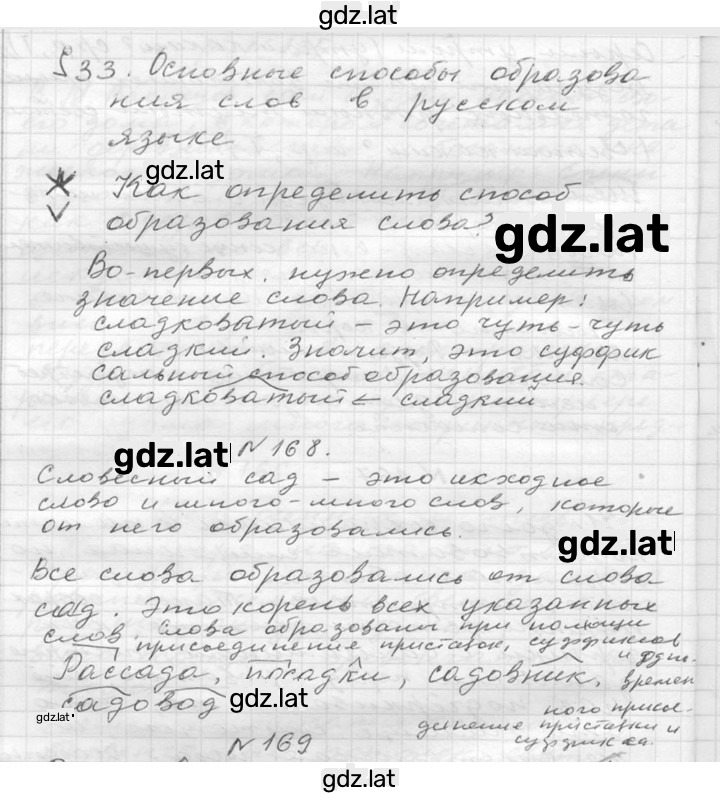 gdz.lat
§33. Основные способы образова
ния слов в русском
языке
gdz.lat
Как определить способ
образования слова?
gdz.lat
Во-первых, нужно определить
значение слова. Например:
сладковатый – это чуть-чуть
сладкий. Значит, это суффик
сальный способ образования.
сладковатый ← сладкий
gdz.lat
№168.
Словесный сад – это исходное
слово и много-много слов, которые
от него образовались.
gdz.lat
Все слова образовались от слова
сад. Это корень всех указанных
слов. Слова образованы при помощи
присоединения приставок, суффиксов
и одн.
Рассада, посадки, садовник, времен
садовод
gdz.lat
gdz.lat
ного присое-
динение приставки и
суффикса.
№169
gdz.lat